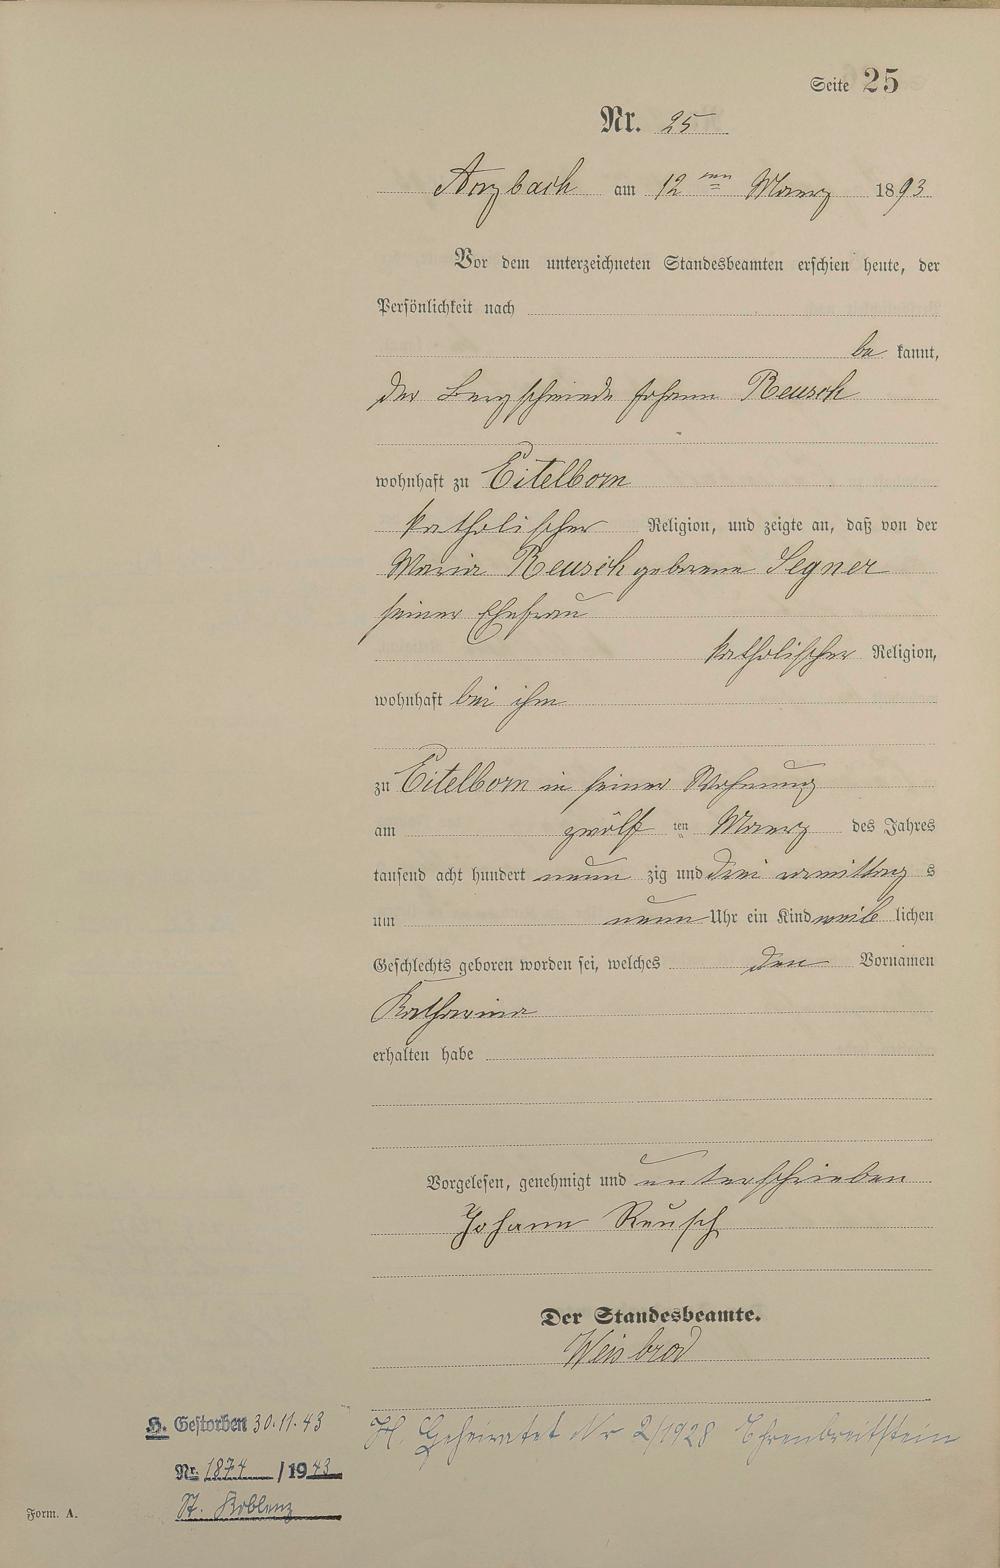 Seite 25
Nr. 25
Arzbach am 12ten Maerz 1893
Vor dem unterzeichneten Standesbeamten erschien heute, der
Persönlichkeit nach
be kannt,
der Bergschmiede Johann Reusch
wohnhaft zu Eitelborn
katholischer Religion, und zeigte an, daß von der
Maria Reusch geborene Segner
seiner Ehefrau
katholischer Religion,
wohnhaft bei ihm
zu Eitelborn in seiner Wohnung
am zwölf ten Maerz des Jahres
tausend acht hundert neun zig und drei vormittag s
um neun Uhr ein Kind weib lichen
Geschlechts geboren worden sei, welches den Vornamen
Katharina
erhalten habe
Vorgelesen, genehmigt und unterschrieben
Johann Reusch
Der Standesbeamte.
Weisbrod
H. Geheiratet Nr 2/1928 Ehrenbreitstein
H. Gestorben 30.11.43
Nr. 1874 / 1943
St. Koblenz
Form. A.